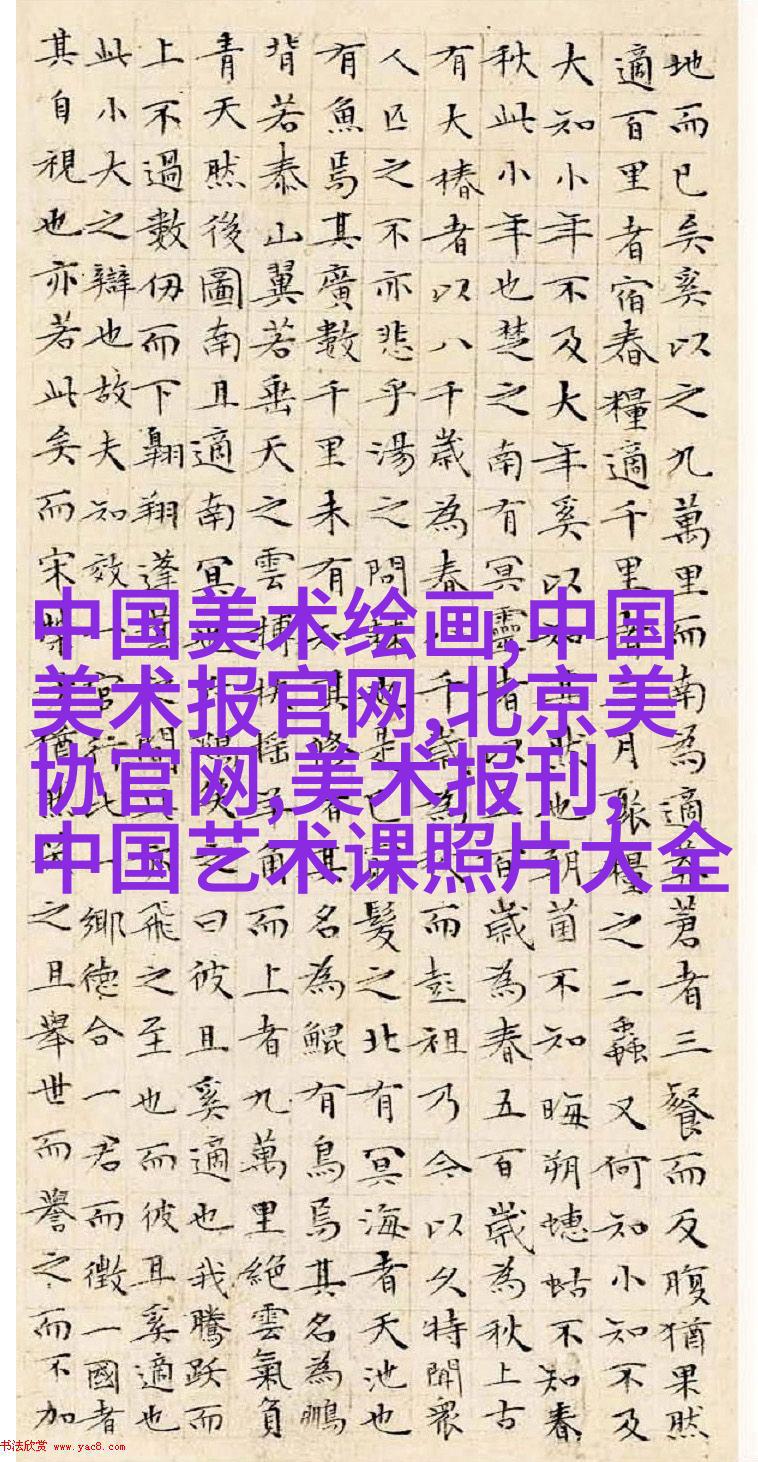 地而已矣奚以之九萬里而南為適莽蒼者三餐而反腹猶果然
適百里者宿舂糧適千里者月聚糧之二蟲又何知小知不及
大知小年不及大年奚以知其然也朝菌不知晦朔蟪蛄不知春
秋此小年也楚之南有冥靈者以百歲為春五百歲為秋上古
有大椿者以八千歲為春千歲為秋而彭祖乃今以久特聞眾
人匹之不亦悲乎湯之問棘也是已窮髮之北有冥海者天池也
有魚焉其廣數千里未有知其修者其名為鯤有鳥焉其名為鵬
背若泰山翼若垂天之雲摶扶搖羊角而上者九萬里絕雲氣負
青天然後圖南且適南冥也笑之曰彼且奚適也我騰躍而
上不過數仞而下翱翔蓬蒿之間此亦飛之至也而彼且奚適也
此小大之辯也故夫知效一官行比一鄉德合一君而徵一國者
其自視也亦若此矣而宋榮子猶然笑之且舉世而譽之而不加
中国美术绘画,中国
美术报官网,北京美
协官网,美术报刊,
中国艺术课照片大全
书法欣赏 www.yac8.com